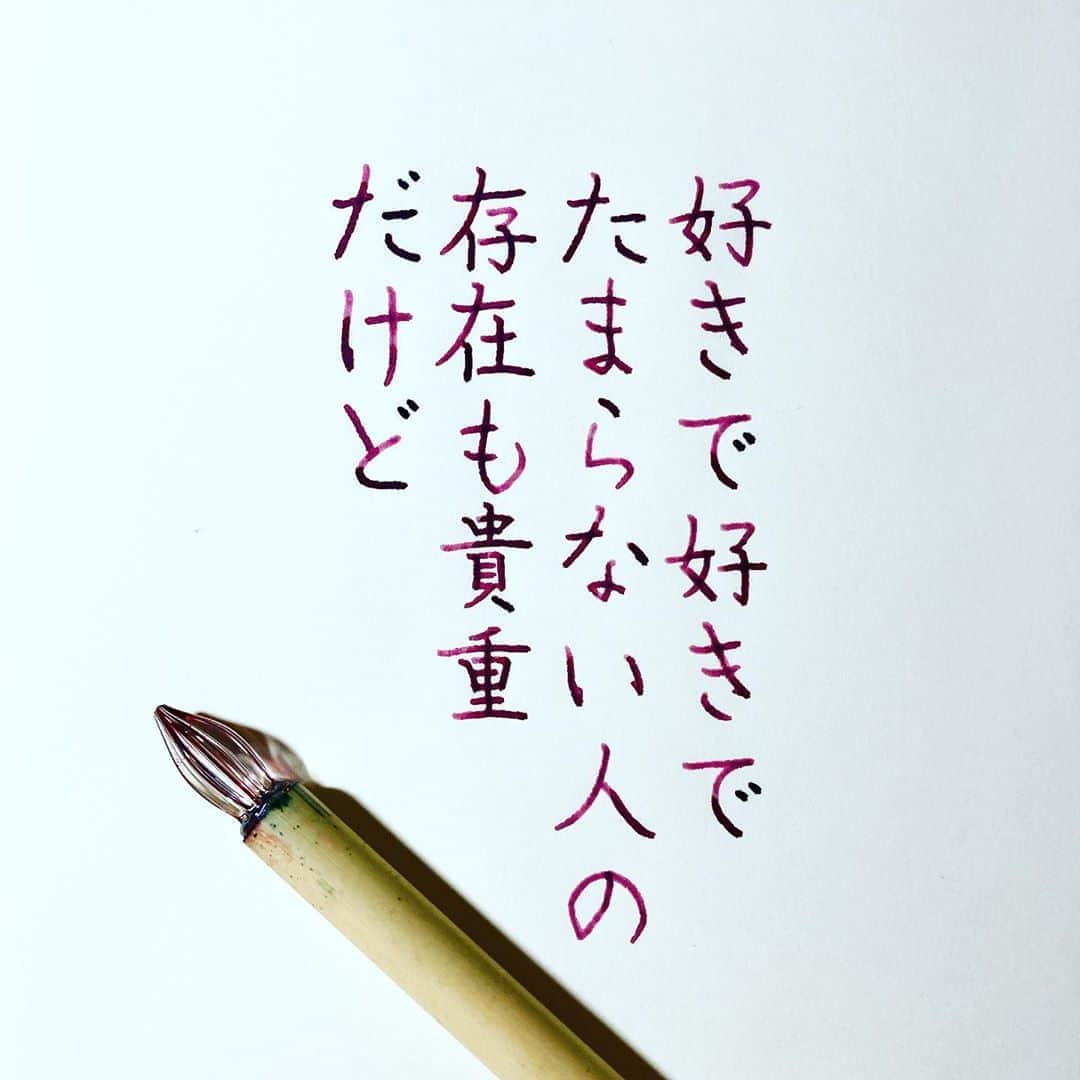 好きで好きで
たまらない人の
存在も貴重
だけど